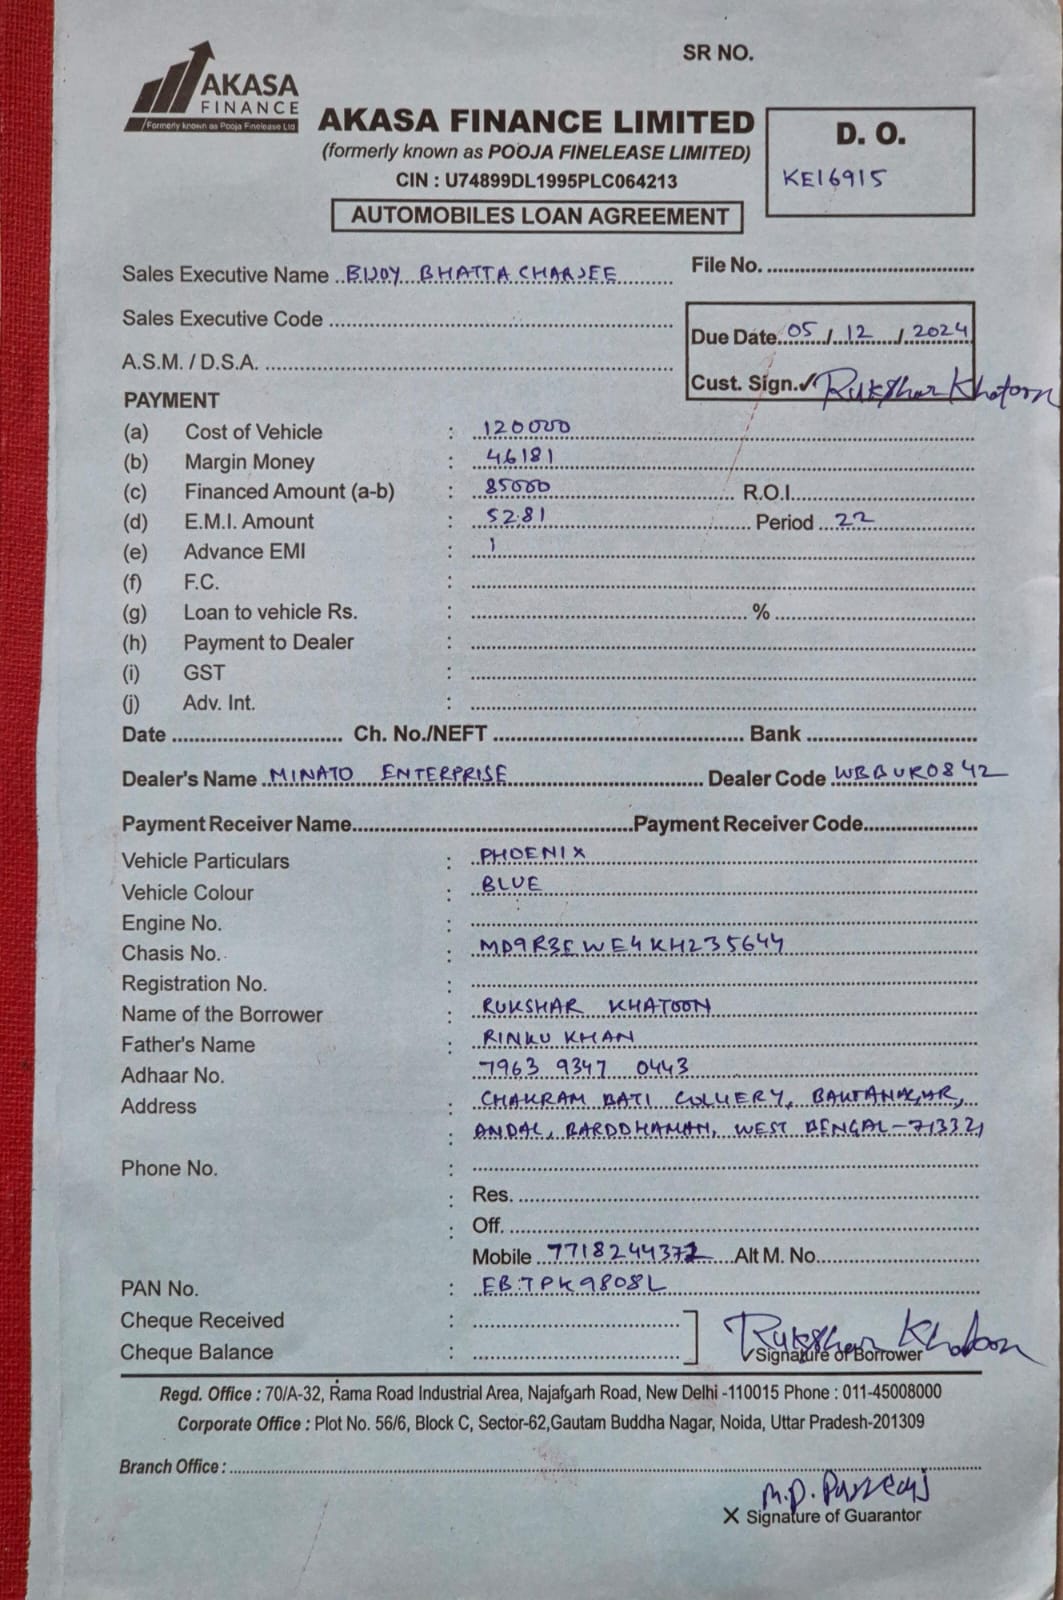 SR NO.
AKASA
FINANCE
Formerly known as Pooja Finelease Ltd
AKASA FINANCE LIMITED
(formerly known as POOJA FINELEASE LIMITED)
CIN : U74899DL1995PLC064213
AUTOMOBILES LOAN AGREEMENT
D. O.
KE16915
Sales Executive Name BIJOY BHATTACHARJEE
File No.
Sales Executive Code
Due Date 05/12/2024
A.S.M. / D.S.A.
Cust. Sign. ✓ Rukshar Khatoon
PAYMENT
(a) Cost of Vehicle : 120000
(b) Margin Money : 46181
(c) Financed Amount (a-b) : 85000 R.O.I.
(d) E.M.I. Amount : 5281 Period 22
(e) Advance EMI : 1
(f) F.C. :
(g) Loan to vehicle Rs. : %
(h) Payment to Dealer :
(i) GST :
(j) Adv. Int. :
Date Ch. No./NEFT Bank
Dealer's Name MINATO ENTERPRISE Dealer Code WBBUR0842
Payment Receiver Name Payment Receiver Code
Vehicle Particulars : PHOENIX
Vehicle Colour : BLUE
Engine No. :
Chasis No. : MD9R3EWE4KH235644
Registration No. :
Name of the Borrower : RUKSHAR KHATOON
Father's Name : RINKU KHAN
Adhaar No. : 7963 9347 0443
Address : CHAKRAM BATI COLLIERY, BAKTANAGAR,
: ANDAL, BARDDHAMAN, WEST BENGAL-713321
Phone No. :
: Res.
: Off.
Mobile 7718244372 Alt M. No.
PAN No. : EBTPK9808L
Cheque Received :
Cheque Balance :
Rukshar Khatoon
✓Signature of Borrower
Regd. Office : 70/A-32, Rama Road Industrial Area, Najafgarh Road, New Delhi -110015 Phone : 011-45008000
Corporate Office : Plot No. 56/6, Block C, Sector-62,Gautam Buddha Nagar, Noida, Uttar Pradesh-201309
Branch Office :
M.D.
X Signature of Guarantor